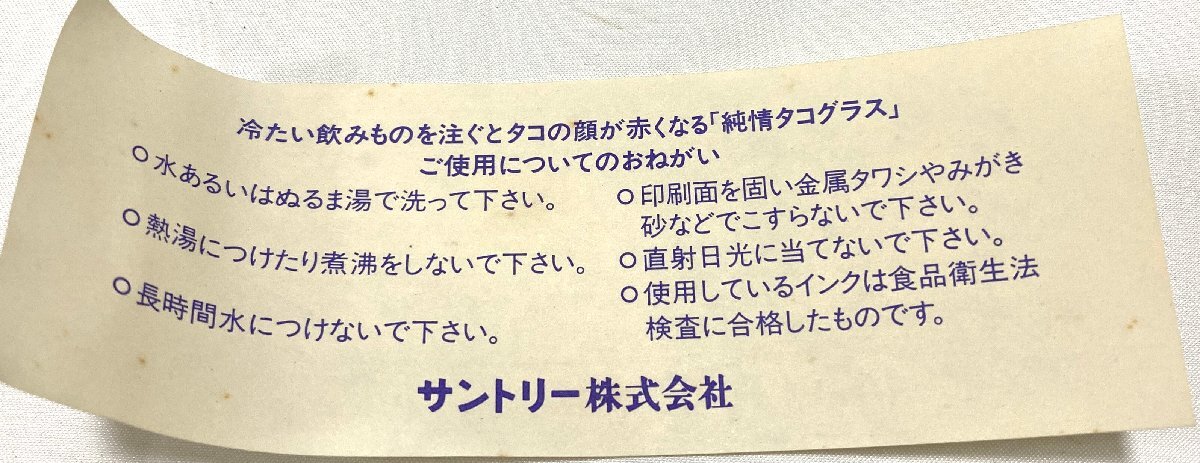 冷たい飲みものを注ぐとタコの顔が赤くなる「純情タコグラス」
ご使用についてのおねがい
○水あるいはぬるま湯で洗って下さい。
○熱湯につけたり煮沸をしないで下さい。
○長時間水につけないで下さい。
○印刷面を固い金属タワシやみがき
砂などでこすらないで下さい。
○直射日光に当てないで下さい。
○使用しているインクは食品衛生法
検査に合格したものです。
サントリー株式会社